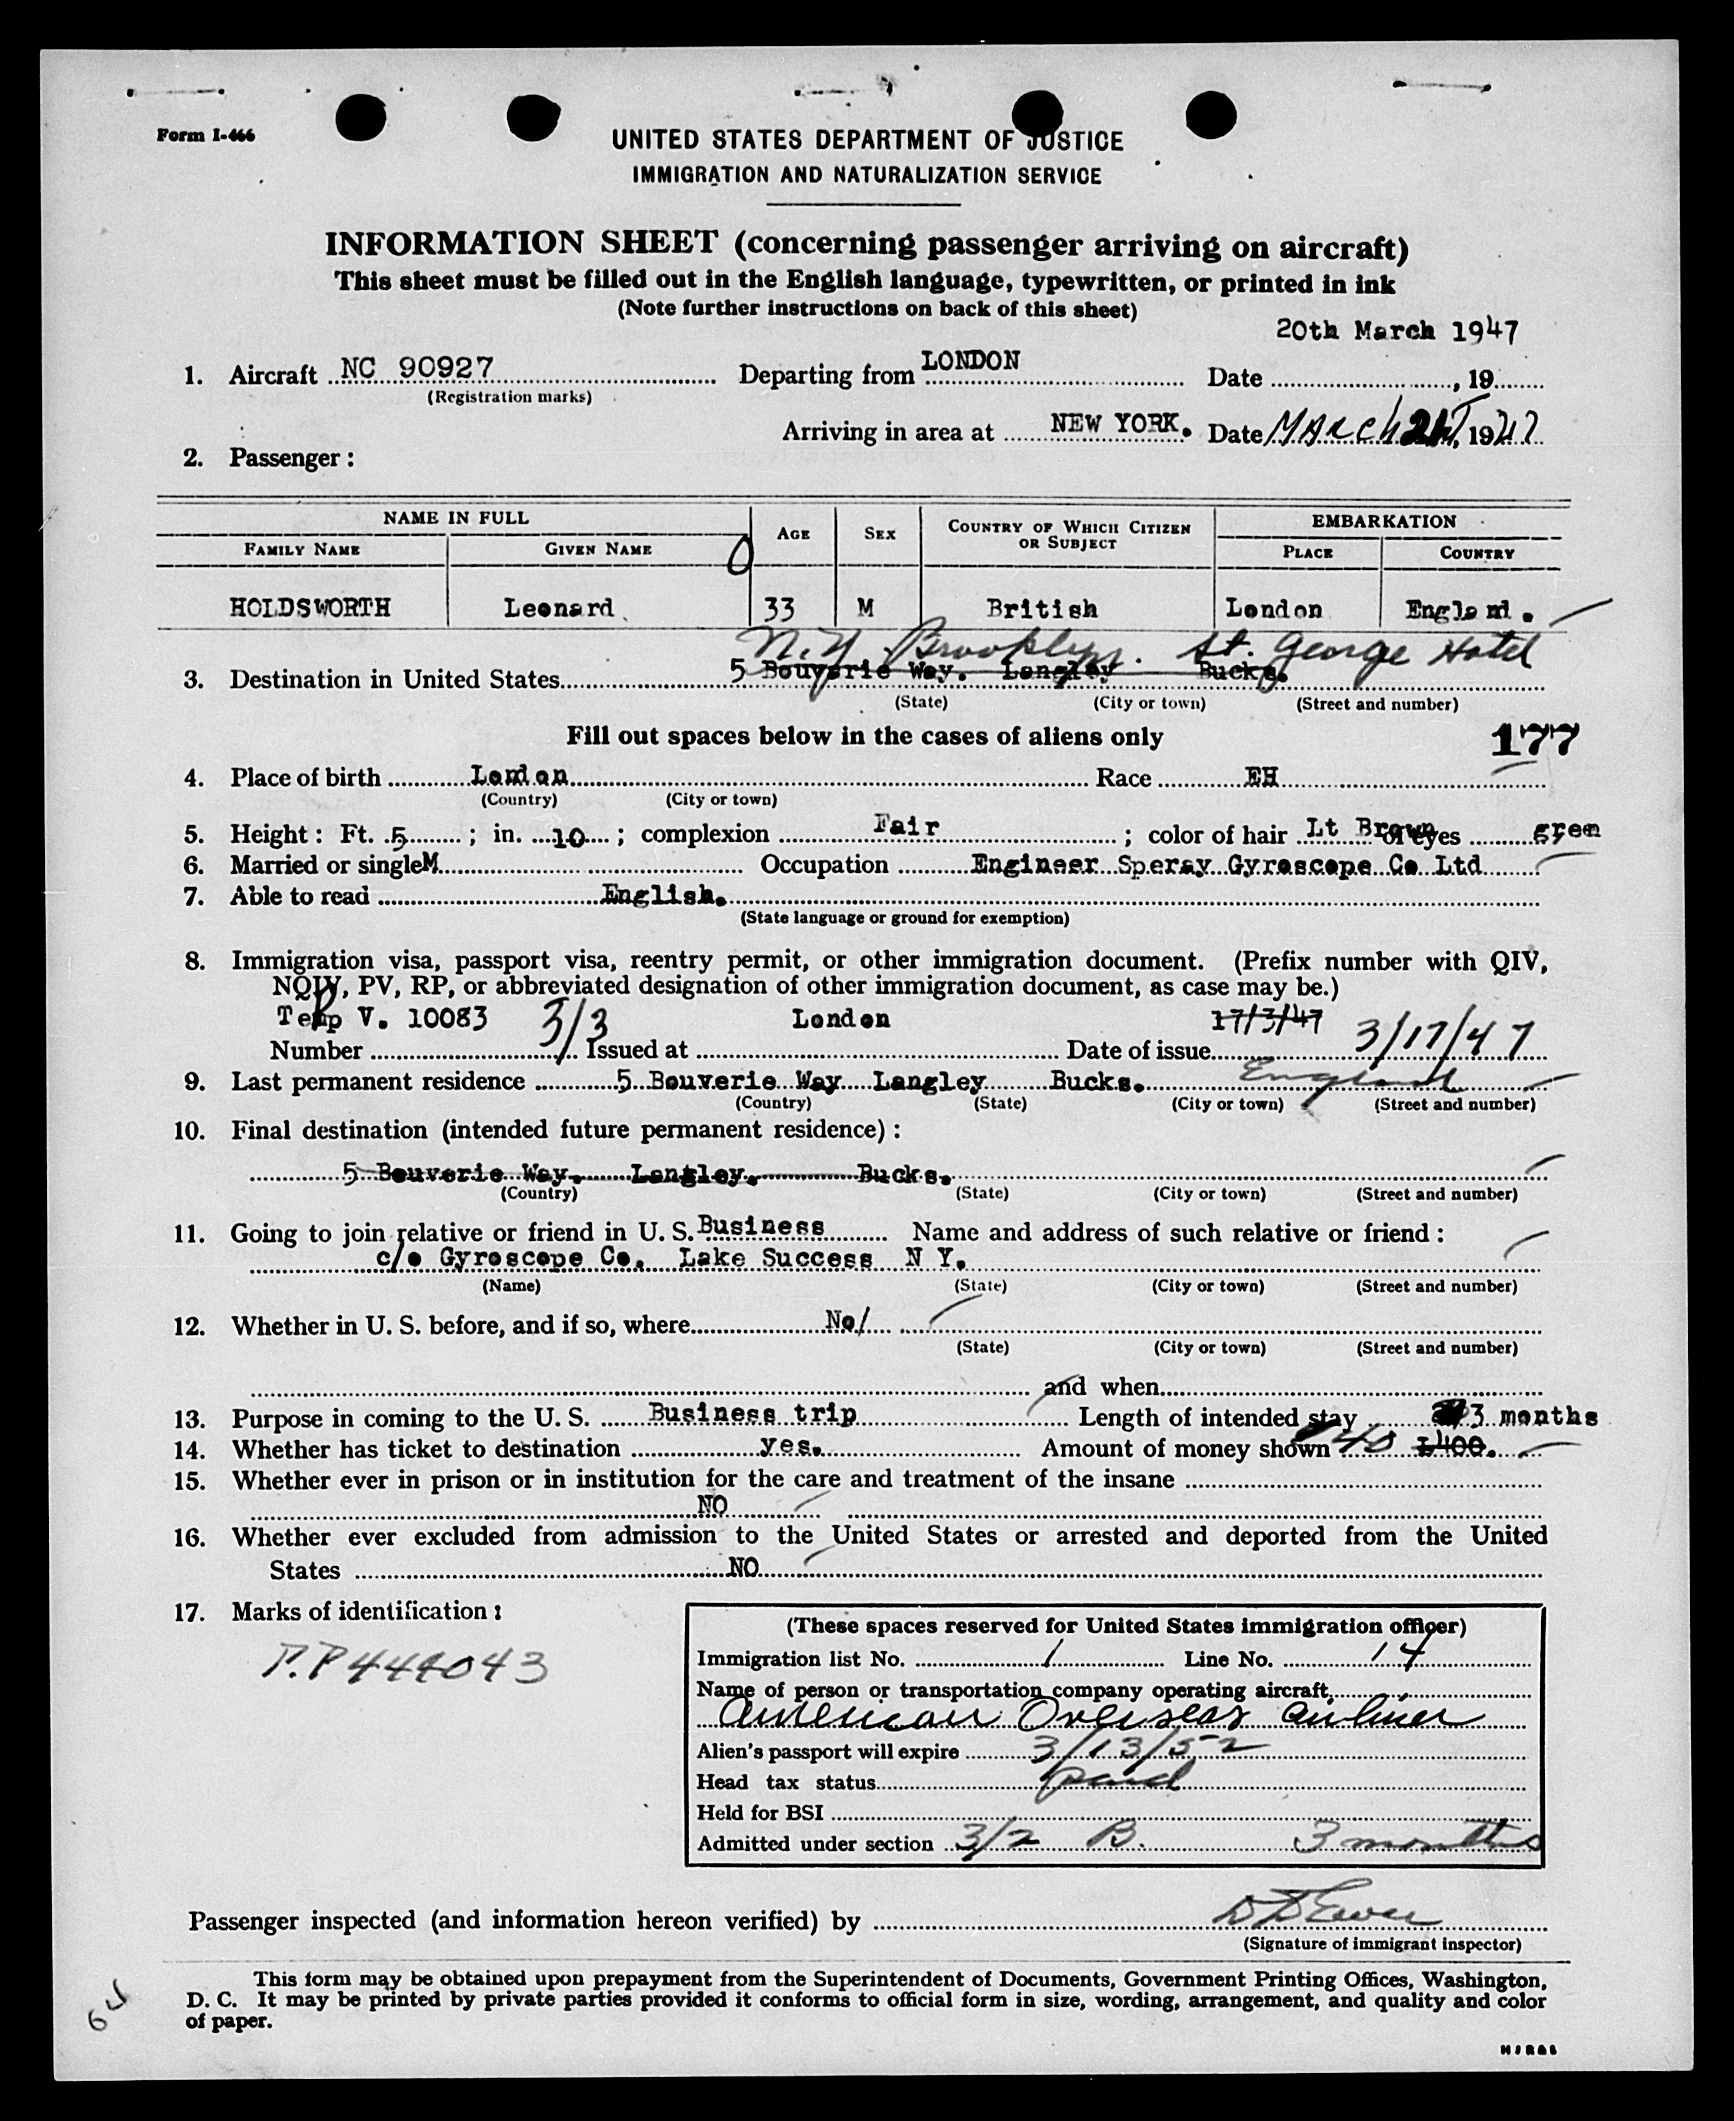 Form I-466
UNITED STATES DEPARTMENT OF JUSTICE
IMMIGRATION AND NATURALIZATION SERVICE
INFORMATION SHEET (concerning passenger arriving on aircraft)
This sheet must be filled out in the English language, typewritten, or printed in ink
(Note further instructions on back of this sheet)
20th March 1947
1. Aircraft NC 90927 Departing from LONDON Date , 19
(Registration marks)
Arriving in area at NEW YORK. Date MARCH 21ST, 1947
2. Passenger :
NAME IN FULL AGE SEX COUNTRY OF WHICH CITIZEN OR SUBJECT EMBARKATION
FAMILY NAME GIVEN NAME PLACE COUNTRY
HOLDSWORTH Leonard 33 M British London England.
N.Y. Brooklyn. St. George Hotel
3. Destination in United States 5 Bouverie Way. Langley Bucks.
(State) (City or town) (Street and number)
Fill out spaces below in the cases of aliens only 177
4. Place of birth London Race EH
(Country) (City or town)
5. Height : Ft. 5 ; in. 10 ; complexion Fair ; color of hair Lt Brown of eyes green
6. Married or single M Occupation Engineer Speray Gyroscope Co Ltd
7. Able to read English.
(State language or ground for exemption)
8. Immigration visa, passport visa, reentry permit, or other immigration document. (Prefix number with QIV,
NQIV, PV, RP, or abbreviated designation of other immigration document, as case may be.)
Temp V. 10083 3/3 London 17/3/47 3/17/47
Number Issued at Date of issue
9. Last permanent residence 5 Bouverie Way Langley Bucks. England
(Country) (State) (City or town) (Street and number)
10. Final destination (intended future permanent residence) :
5 Bouverie Way. Langley. Bucks.
(Country) (State) (City or town) (Street and number)
11. Going to join relative or friend in U. S. Business Name and address of such relative or friend :
c/o Gyroscope Co. Lake Success N Y.
(Name) (State) (City or town) (Street and number)
12. Whether in U. S. before, and if so, where No/
(State) (City or town) (Street and number)
and when
13. Purpose in coming to the U. S. Business trip Length of intended stay 3 months
14. Whether has ticket to destination yes. Amount of money shown 40 L400.
15. Whether ever in prison or in institution for the care and treatment of the insane
NO
16. Whether ever excluded from admission to the United States or arrested and deported from the United
States NO
17. Marks of identification :
P.P 444043
(These spaces reserved for United States immigration officer)
Immigration list No. 1 Line No. 14
Name of person or transportation company operating aircraft
American Overseas Airlines
Alien's passport will expire 3/13/52
Head tax status paid
Held for BSI
Admitted under section 3/2 B. 3 months
Passenger inspected (and information hereon verified) by
(Signature of immigrant inspector)
This form may be obtained upon prepayment from the Superintendent of Documents, Government Printing Offices, Washington,
D. C. It may be printed by private parties provided it conforms to official form in size, wording, arrangement, and quality and color
of paper.